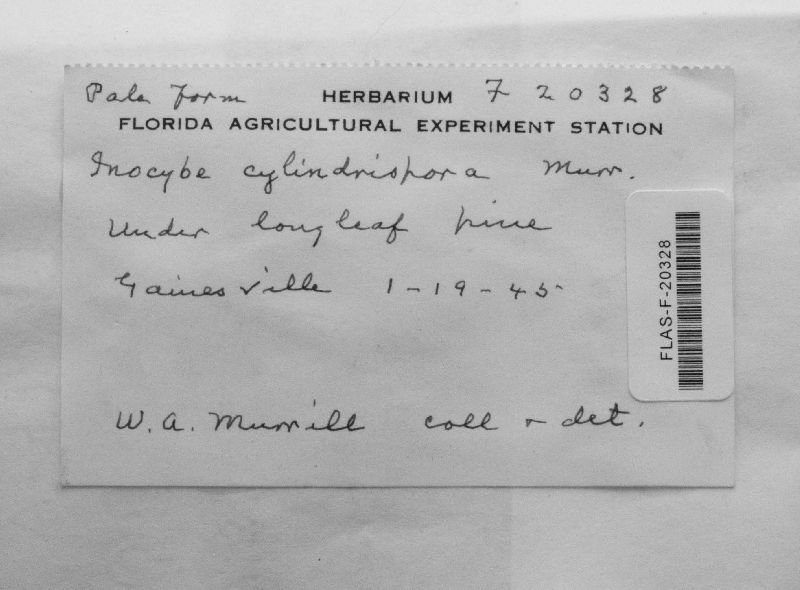 Pale form HERBARIUM F 20328
FLORIDA AGRICULTURAL EXPERIMENT STATION
Inocybe cylindrispora Murr.
Under longleaf pine
Gainesville 1-19-45
FLAS-F-20328
W. A. Murrill coll & det.